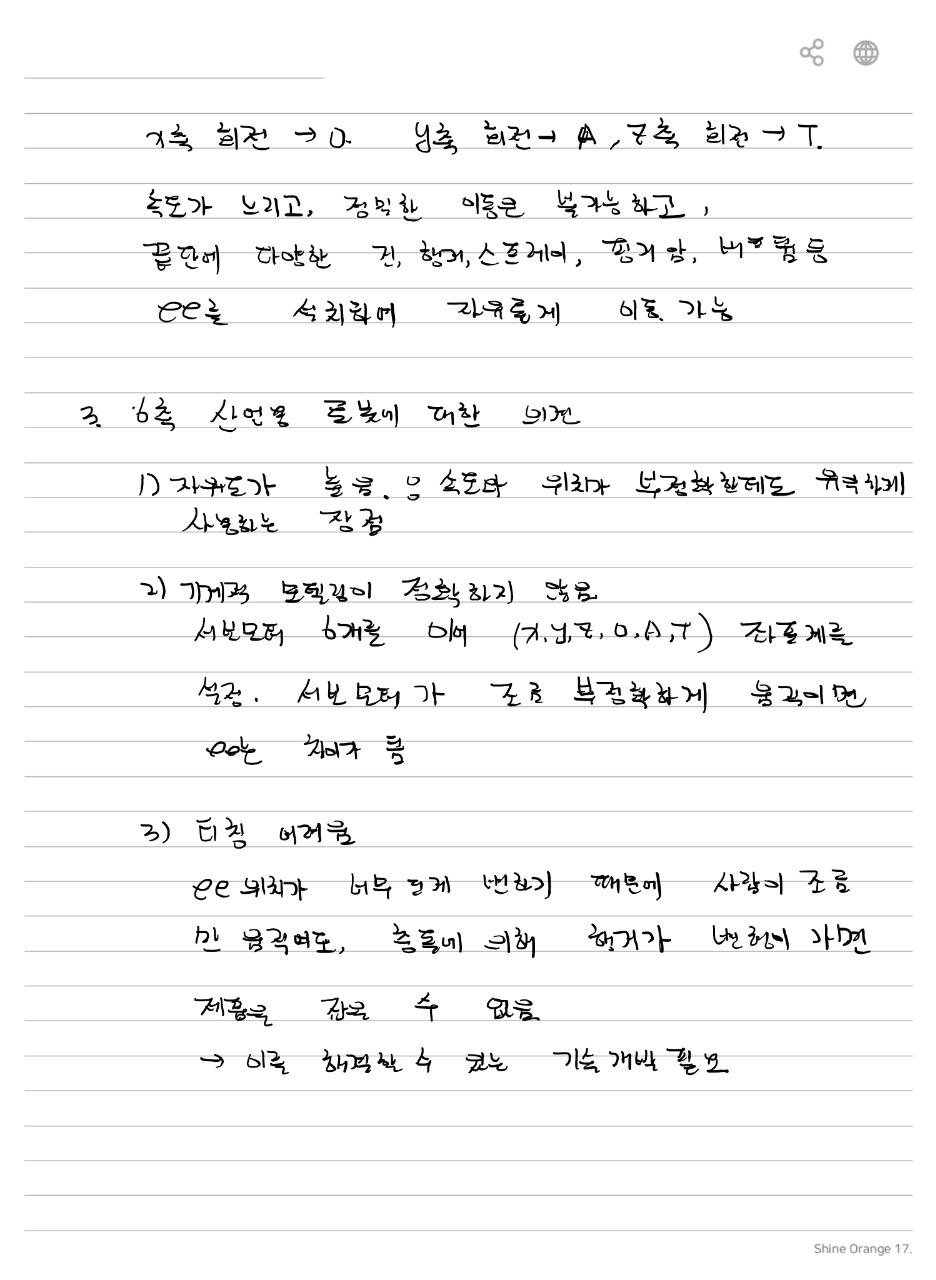 x축 회전 → O. y축 회전 → A, Z축 회전 → T.
속도가 느리고, 정밀한 이동은 불가능하고,
끝단에 다양한 건, 행거, 스프레이, 핑거 암, 버큠 툴 등
ee를 설치하여 자유롭게 이동 가능
3. 6축 산업용 로봇에 대한 의견
1) 자유도가 높음. 속도와 위치가 부정확한데도 유익하게
사용하는 장점
2) 기계적 모델링이 정확하지 않음
서보모터 6개를 이어 (x,y,z,O,A,T) 좌표계를
설정. 서보모터가 조금 부정확하게 움직이면
ee는 차이가 큼
3) 티칭 어려움
ee 위치가 너무 크게 변하기 때문에 사람이 조금
만 움직여도, 충돌에 의해 행거가 변형이 가면
제품을 잡을 수 없음
→ 이를 해결할 수 있는 기술 개발 필요